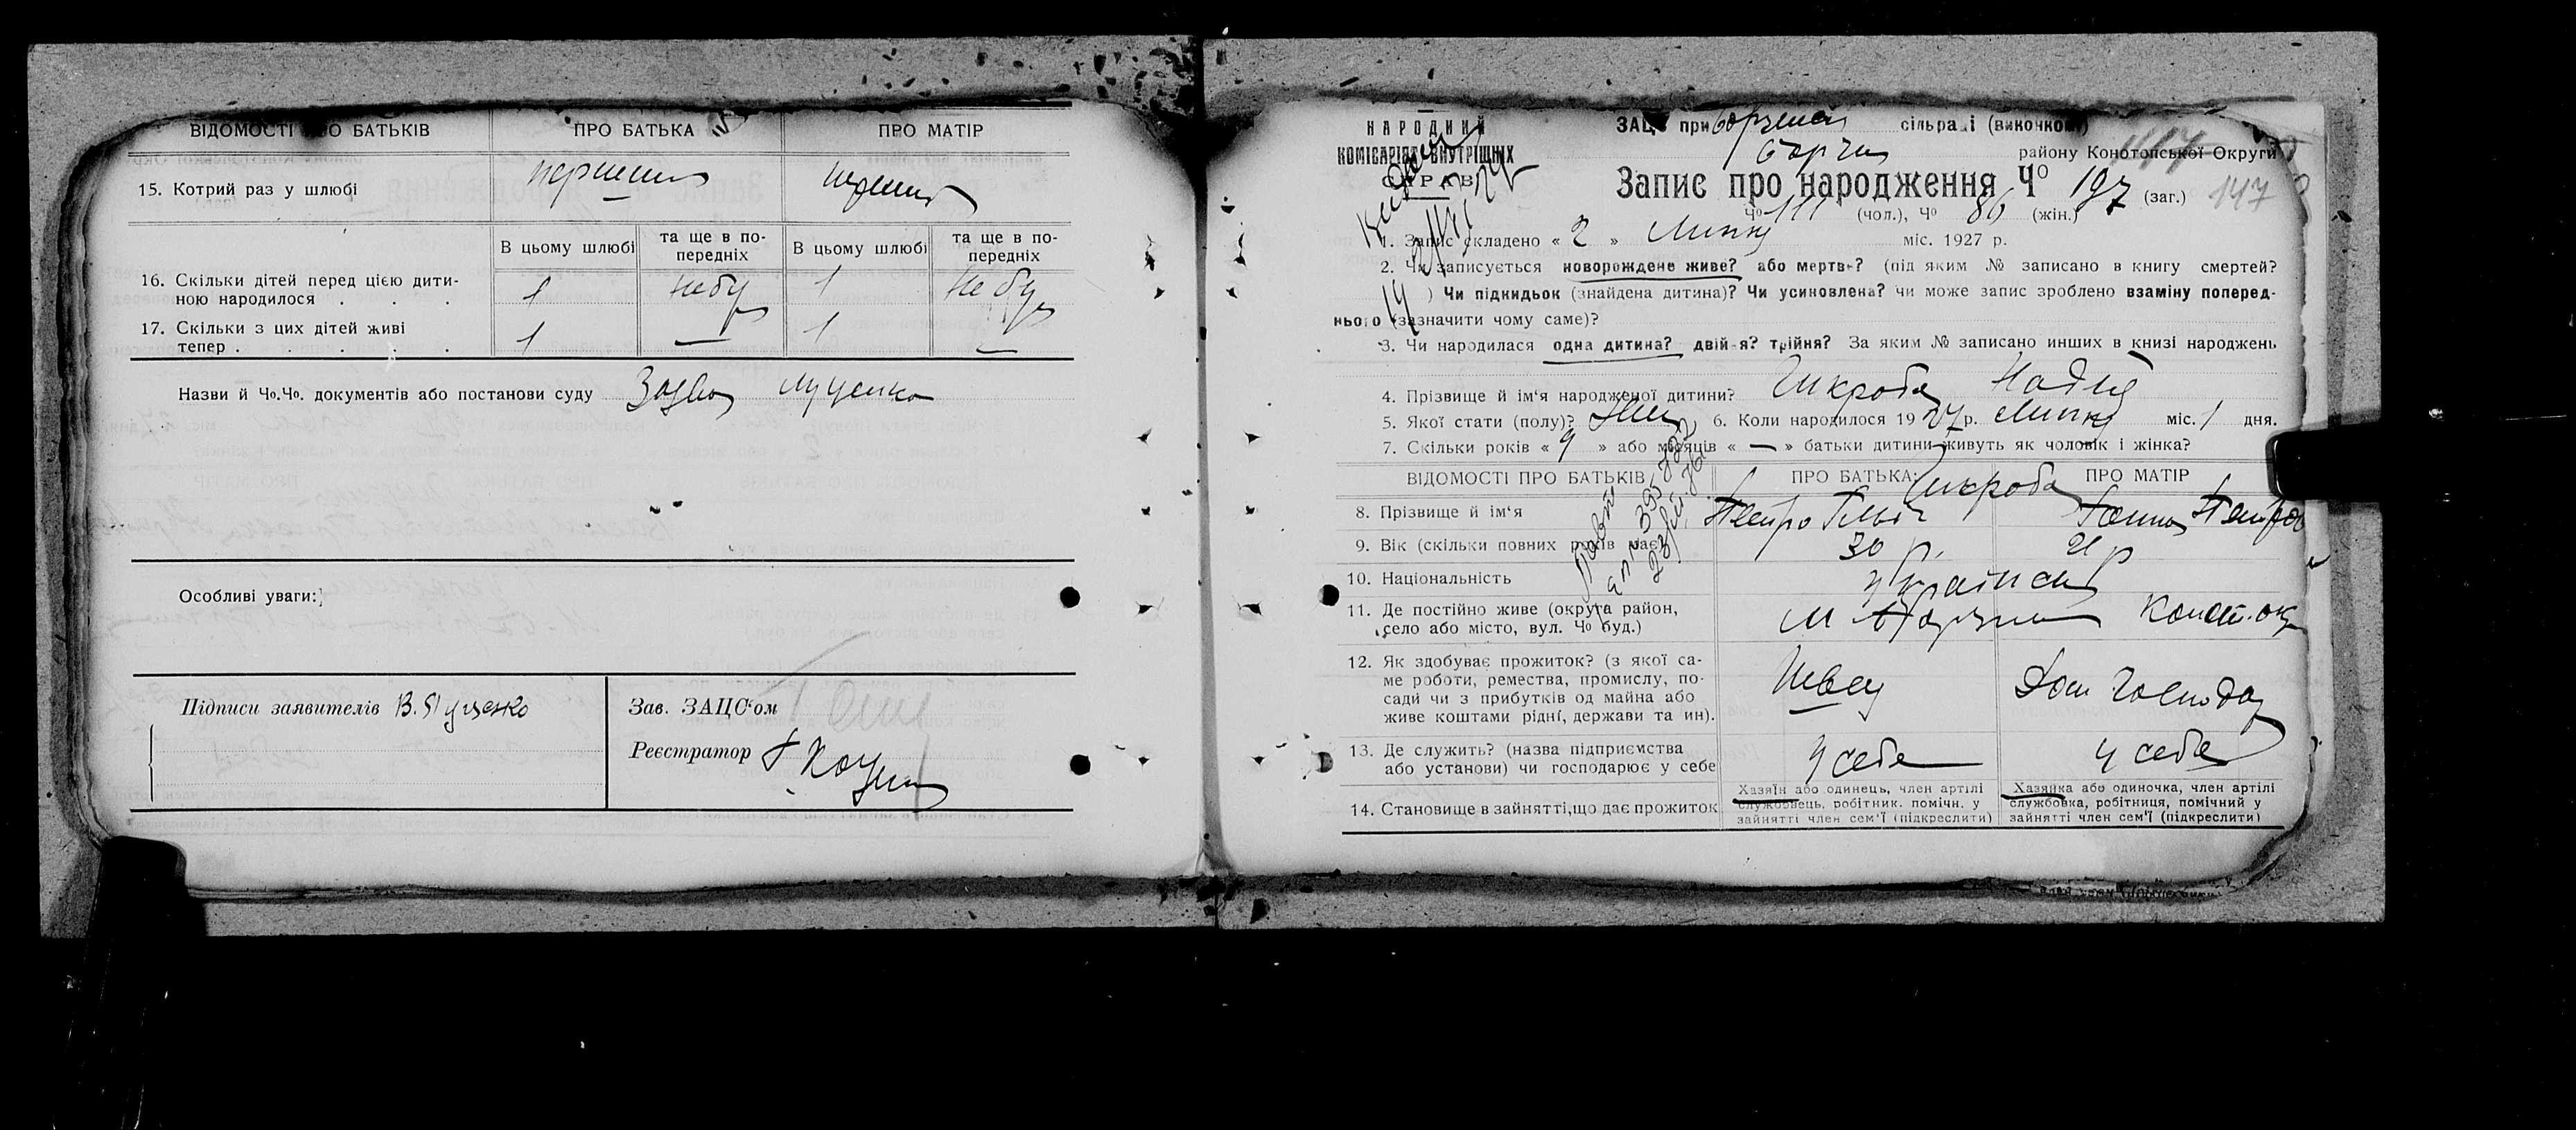 ВІДОМОСТІ ПРО БАТЬКІВ ПРО БАТЬКА ПРО МАТІР
15. Котрий раз у шлюбі
В цьому шлюбі та ще в по-передніх В цьому шлюбі та ще в по-передніх
16. Скільки дітей перед цією дити-
ною народилося . . . 1 Не бул 1 Не бул
17. Скільки з цих дітей живі
тепер . . . . . 1 — 1 —
Назви й Чо.Чо. документів або постанови суду Заява Луценка
Особливі уваги:
Підписи заявителів В. Луценко
Зав. ЗАЦС'ом
Реєстратор
НАРОДНИЙ
КОМІСАРІЯТ ВНУТРІШНІХ
СПРАВ
ЗАЦС при сільраді (виконкомі)
району Конотопської Округи
Запис про народження Чо 197 (заг.) 147
Чо 111 (чол.), Чо 86 (жін.)
1. Запис складено « 2 » Липня міс. 1927 р.
2. Чи записується новорождене живе? або мертве? (під яким № записано в книгу смертей?
) Чи підкидьок (знайдена дитина)? Чи усиновлена? чи може запис зроблено взаміну поперед-
нього (зазначити чому саме)?
3. Чи народилася одна дитина? двій-я? трійня? За яким № записано инших в книзі народжень
4. Прізвище й ім'я народженої дитини? Шкроба Надія
5. Якої стати (полу)? Жін 6. Коли народилося 1927 р. Липня міс. 1 дня.
7. Скільки років « 9 » або місяців « — » батьки дитини живуть як чоловік і жінка?
ВІДОМОСТІ ПРО БАТЬКІВ ПРО БАТЬКА: ПРО МАТІР
Шкроба
8. Прізвище й ім'я Петро Ганна Петров
9. Вік (скільки повних років має) 30 р.
10. Національність Українська
11. Де постійно живе (округа район,
село або місто, вул. Чо буд.) М Борзна Конот. окр
12. Як здобуває прожиток? (з якої са-
ме роботи, ремества, промислу, по-
сади чи з прибутків од майна або
живе коштами рідні, держави та ин). Швец Дом Господар
13. Де служить? (назва підприємства
або установи) чи господарює у себе У себе У себе
14. Становище в зайнятті, що дає прожиток
Хазяїн або одинець, член артілі
службовець, робітник, помічн. у
зайнятті член сем'ї (підкреслити)
Хазяйка або одиночка, член артілі
службовка, робітниця, помічний у
зайнятті член сем'ї (підкреслити)